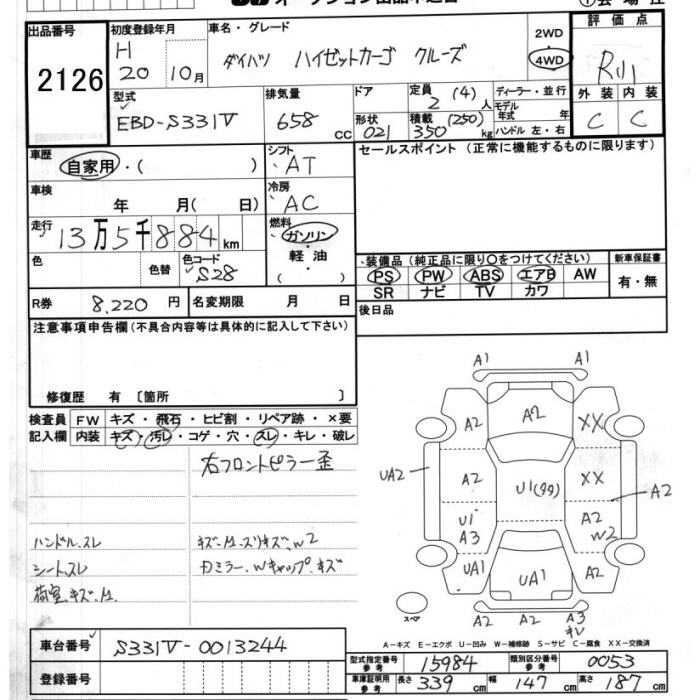 出品番号
2126
初度登録年月
H
20 10月
車名・グレード
ダイハツ ハイゼットカーゴ クルーズ
2WD
4WD
評価点
外装 内装
C C
型式
EBD-S331V
排気量
658
cc
ドア
形状
021
定員
2 (4) 人
積載 (250)
350 kg
ディーラー・並行
モデル
年式 年
ハンドル 左・右
車歴
自家用・( )
シフト
AT
セールスポイント (正常に機能するものに限ります)
車検
年 月( 日)
冷房
AC
走行
13万5千884km
燃料
ガソリン
軽油
( )
色
色替
色コード
S28
装備品 (純正品に限り○をつけてください)
PS PW ABS エアB AW
SR ナビ TV カワ
新車保証書
有・無
R券 8,220円
名変期限 月 日
後日品
注意事項申告欄(不具合内容等は具体的に記入して下さい)
修復歴 有 〔箇所 〕
検査員
記入欄
FW キズ・飛石・ヒビ割・リペア跡・×要
内装 キズ・汚レ・コゲ・穴・スレ・キレ・破レ
右フロントピラー歪
ハンドル.スレ
シート.スレ
荷室.キズ.M.
キズ.M.スリキズ.W2
カミラー.Wキャップ.キズ
A1 A1
A2 A2 XX
UA2 A2 U1(タタ) XX A2
U1
A3
A2
W2
UA1 UA1 A2
スペア
A2 A2 A3
キレ
A-キズ E-エクボ U-凹み W-補修跡 S-サビ C-腐食 XX-交換済
車台番号 S331V-0013244
登録番号
型式指定番号
参考
15984
類別区分番号
参考
0053
車庫証明用
参考
長さ 339cm 幅 147cm 高さ 187cm